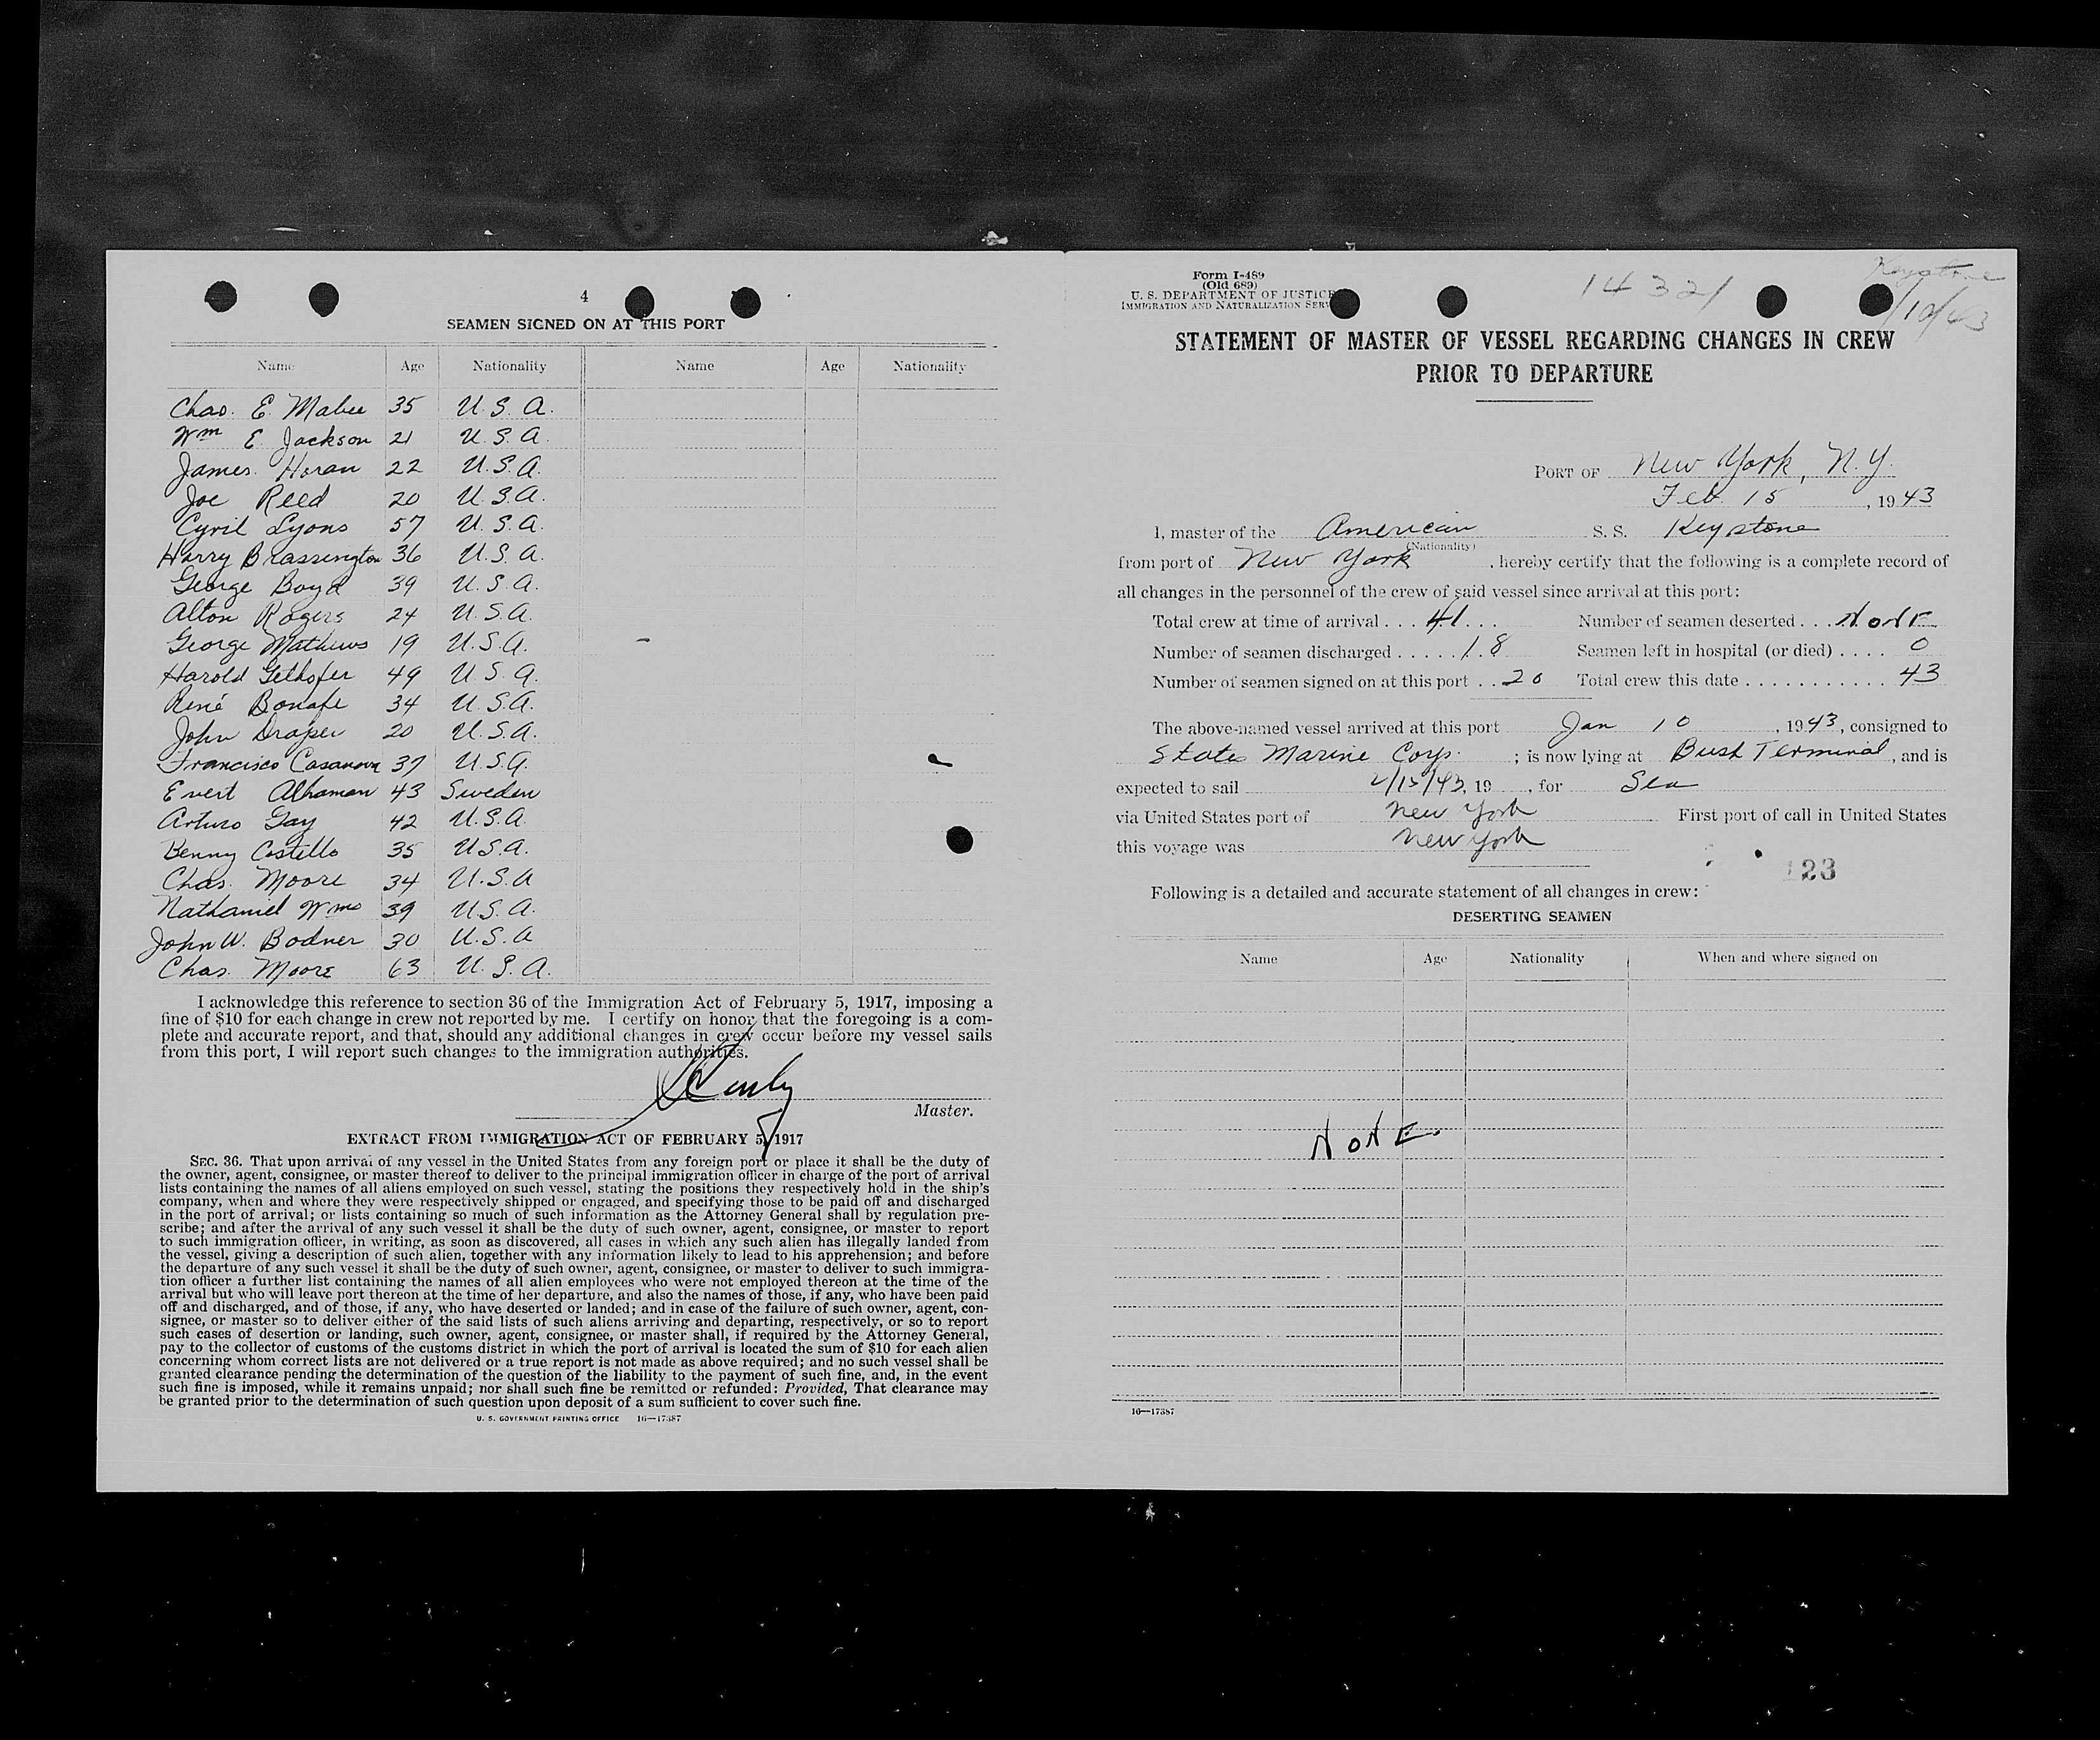 4
SEAMEN SIGNED ON AT THIS PORT
Name Age Nationality Name Age Nationality
Chas. E. Mabee 35 U. S. A.
Wm E. Jackson 21 U. S. A.
James Horan 22 U.S.A.
Joe Reed 20 U.S.A.
Cyril Lyons 57 U.S.A.
Harry Brassington 36 U.S.A.
George Boyd 39 U.S.A.
Alton Rogers 24 U.S.A.
George Mathews 19 U.S.A.
Harold Gelhofer 49 U.S.A.
René Bonafe 34 U.S.A.
John Draper 20 U.S.A.
Francisco Casanova 37 U.S.A.
Evert Alhaman 43 Sweden
Arturo Gay 42 U.S.A
Benny Costello 35 U.S.A.
Chas. Moore 34 U.S.A
Nathaniel Wms 39 U.S.A.
John W. Bodner 30 U.S.A
Chas. Moore 63 U.S.A.
I acknowledge this reference to section 36 of the Immigration Act of February 5, 1917, imposing a
fine of $10 for each change in crew not reported by me. I certify on honor that the foregoing is a com-
plete and accurate report, and that, should any additional changes in crew occur before my vessel sails
from this port, I will report such changes to the immigration authorities.
Master.
EXTRACT FROM IMMIGRATION ACT OF FEBRUARY 5, 1917
SEC. 36. That upon arrival of any vessel in the United States from any foreign port or place it shall be the duty of
the owner, agent, consignee, or master thereof to deliver to the principal immigration officer in charge of the port of arrival
lists containing the names of all aliens employed on such vessel, stating the positions they respectively hold in the ship's
company, when and where they were respectively shipped or engaged, and specifying those to be paid off and discharged
in the port of arrival; or lists containing so much of such information as the Attorney General shall by regulation pre-
scribe; and after the arrival of any such vessel it shall be the duty of such owner, agent, consignee, or master to report
to such immigration officer, in writing, as soon as discovered, all cases in which any such alien has illegally landed from
the vessel, giving a description of such alien, together with any information likely to lead to his apprehension; and before
the departure of any such vessel it shall be the duty of such owner, agent, consignee, or master to deliver to such immigra-
tion officer a further list containing the names of all alien employees who were not employed thereon at the time of the
arrival but who will leave port thereon at the time of her departure, and also the names of those, if any, who have been paid
off and discharged, and of those, if any, who have deserted or landed; and in case of the failure of such owner, agent, con-
signee, or master so to deliver either of the said lists of such aliens arriving and departing, respectively, or so to report
such cases of desertion or landing, such owner, agent, consignee, or master shall, if required by the Attorney General,
pay to the collector of customs of the customs district in which the port of arrival is located the sum of $10 for each alien
concerning whom correct lists are not delivered or a true report is not made as above required; and no such vessel shall be
granted clearance pending the determination of the question of the liability to the payment of such fine, and, in the event
such fine is imposed, while it remains unpaid; nor shall such fine be remitted or refunded: Provided, That clearance may
be granted prior to the determination of such question upon deposit of a sum sufficient to cover such fine.
U. S. GOVERNMENT PRINTING OFFICE 16—17387
Form I-489
(Old 689)
U. S. DEPARTMENT OF JUSTICE
IMMIGRATION AND NATURALIZATION SERV
14321
Keystone
1/10/43
STATEMENT OF MASTER OF VESSEL REGARDING CHANGES IN CREW
PRIOR TO DEPARTURE
PORT OF New York, N.Y.
Feb. 15, 1943
I, master of the American S. S. Keystone
(Nationality)
from port of New York, hereby certify that the following is a complete record of
all changes in the personnel of the crew of said vessel since arrival at this port:
Total crew at time of arrival . . . 41 . . . Number of seamen deserted . . . NONE
Number of seamen discharged . . . . . 18 Seamen left in hospital (or died) . . . . 0
Number of seamen signed on at this port . . 20 Total crew this date . . . . . . . . . . . . 43
The above-named vessel arrived at this port Jan 10, 1943, consigned to
States Marine Corp. ; is now lying at Bush Terminal, and is
expected to sail 2/15/43, 19 , for Sea
via United States port of New York First port of call in United States
this voyage was New York
123
Following is a detailed and accurate statement of all changes in crew:
DESERTING SEAMEN
Name Age Nationality When and where signed on
NONE.
16—17387